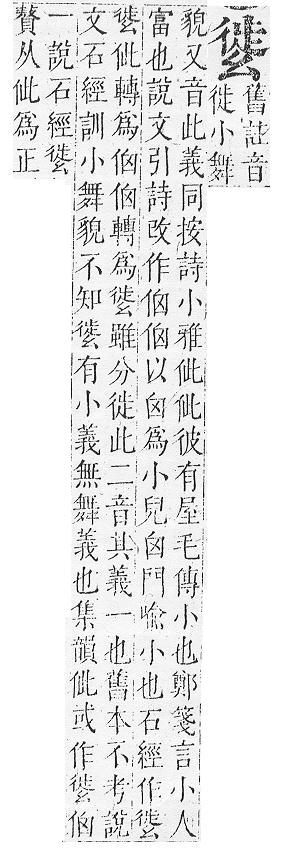 舊註音
徙小舞
貌又音此義同按詩小雅佌佌彼有屋毛傳小也鄭箋言小人
富也說文引詩改作伵伵以囟爲小兒囟門喻小也石經作
佌轉爲伵伵轉爲雖分徙此二音其義一也舊本不考說
文石經訓小舞貌不知有小義無舞義也集韻佌或作伵
一說石經
贅从佌爲正